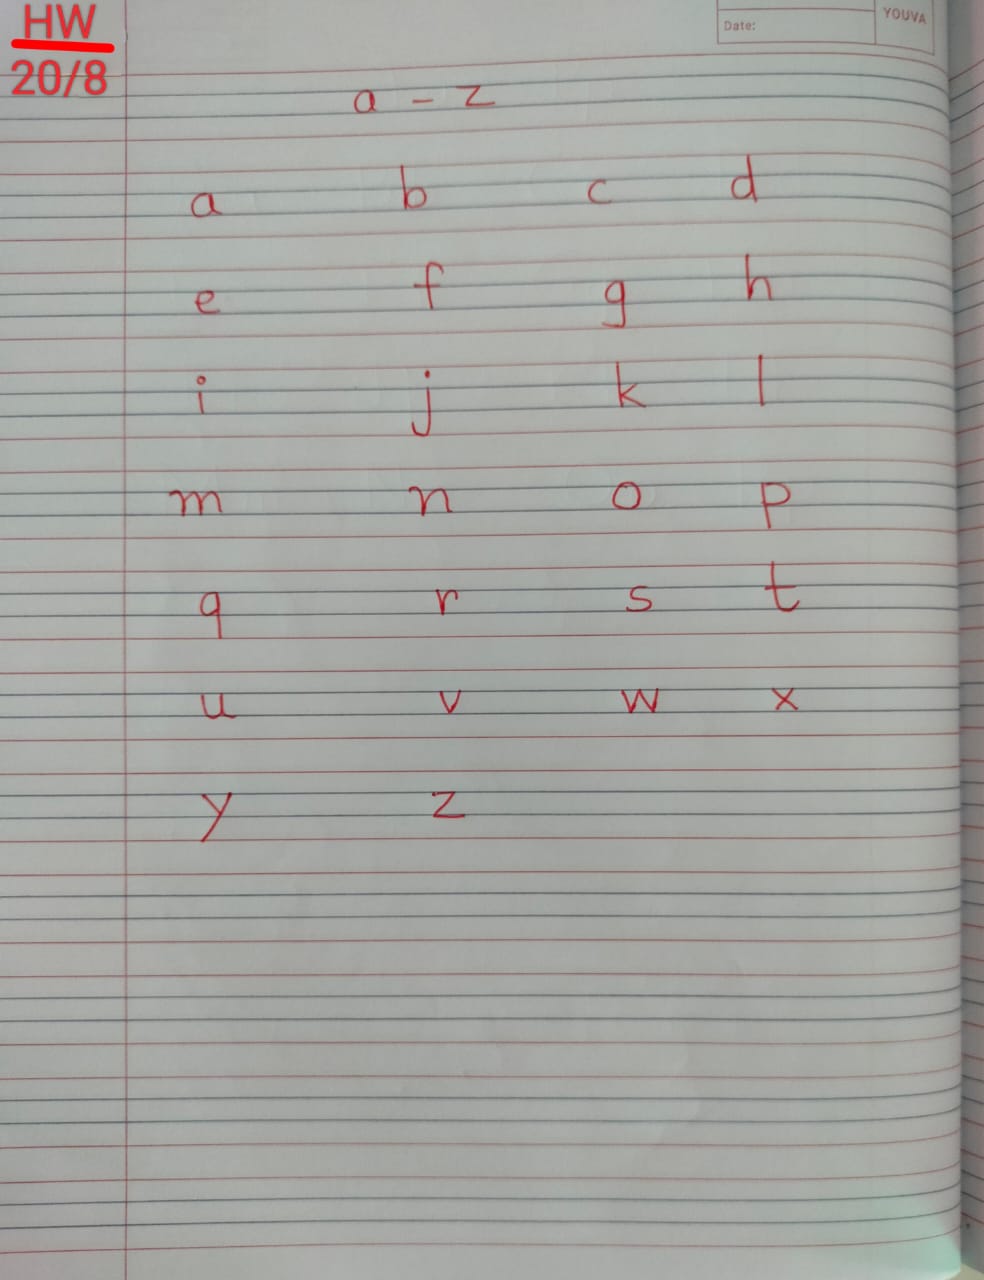 HW
20/8
Date:
YOUVA
a - z
a b c d
e f g h
i j k l
m n o p
q r s t
u v w x
y z